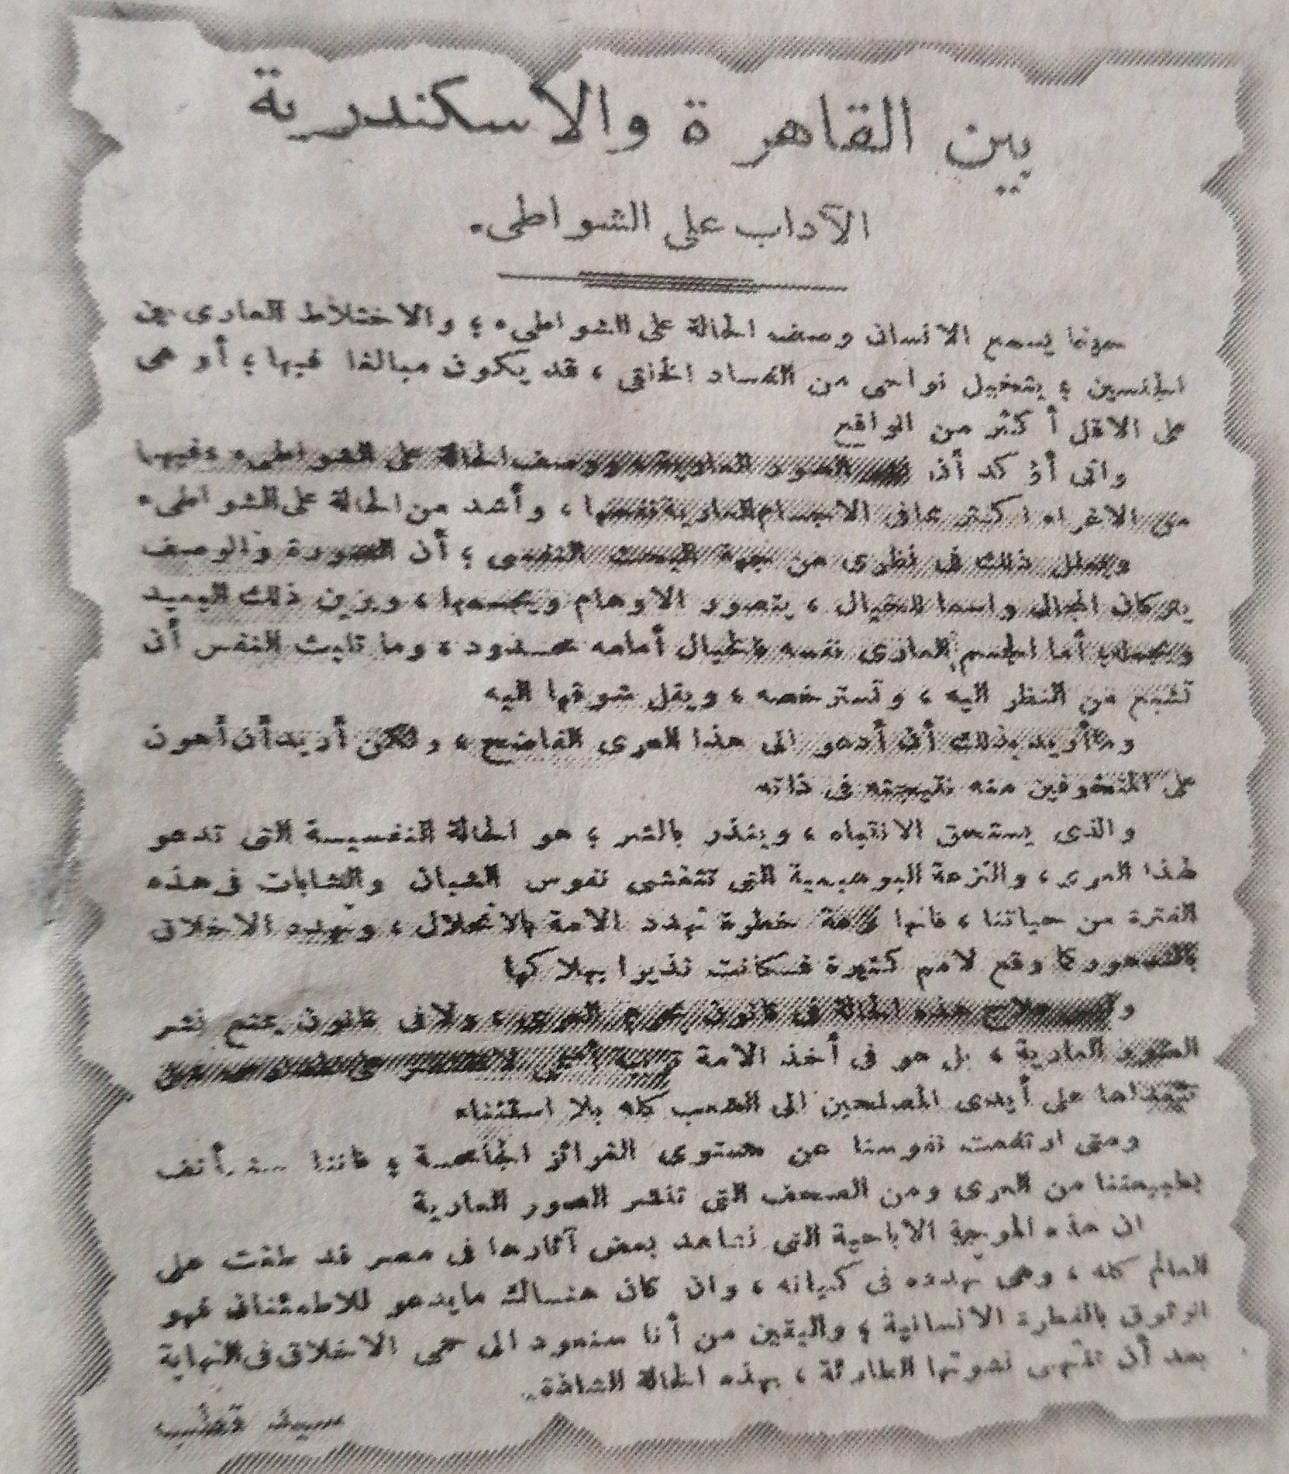 بين القاهرة والاسكندرية
الآداب على الشواطىء
حينما يسمع الانسان وصف الحالة على الشواطىء ؛ والاختلاط العارى بين
الجنسين ؛ يتخيل نواحى من الفساد الخلقى ، قد يكون مبالغا فيها ؛ أو هى
على الاقل أكثر من الواقع
وانى أؤكد أن الصور العارية ، ووصف الحالة على الشواطىء ، فيها
من الاغراء أكثر مما فى الاجسام العارية نفسها ، وأشد من الحالة على الشواطىء
ويعلل ذلك فى نظرى من جهة البحث النفسى ؛ أن الصورة والوصف
يتركان المجال واسعا للخيال ، يتصور الاوهام ويجسمها ، ويزين ذلك البعيد
ويجمله أما الجسم العارى نفسه فالخيال أمامه محدود ، وما تلبث النفس أن
تشبع من النظر اليه ، وتسترخصه ، ويقل شوقها اليه
وما أريد بذلك أن أدعو الى هذا العرى الفاضح ، ولكن أريد أن أهون
على المتخوفين منه نتيجته فى ذاته
والذى يستحق الانتباه ، وينذر بالشر ؛ هو الحالة النفسية التى تدعو
لهذا العرى ، والنزعة البوهيمية التى تتفشى نفوس الشبان والشابات فى هذه
الفترة من حياتنا ، فانها نزعة خطرة تهدد الامة بالانحلال ، وتهدد الاخلاق
بالتدهور كما وقع لامم كثيرة فكانت نذيرا بهلاكها
وليس علاج هذه الحالة فى قانون يحرم العرى ، ولا فى قانون يمنع نشر
الصور العارية ، بل هو فى أخذ الامة
على أيدى المصلحين الى الشعب كله بلا استثناء
ومتى ارتفعت نفوسنا عن مستوى الغرائز الجامحة ؛ فاننا سنأنف
بطبيعتنا من العرى ومن الصحف التى تنشر الصور العارية
ان هذه الموجة الاباحية التى نشاهد بعض آثارها فى مصر قد طغت على
العالم كله ، وهى تهدده فى كيانه ، وان كان هناك ما يدعو للاطمئنان فهو
الوثوق بالفطرة الانسانية ؛ واليقين من أنا سنعود الى حمى الاخلاق فى النهاية
بعد أن تنتهى نشوتها الطارئة ، بهذه الحالة الشاذة.
سيد قطب